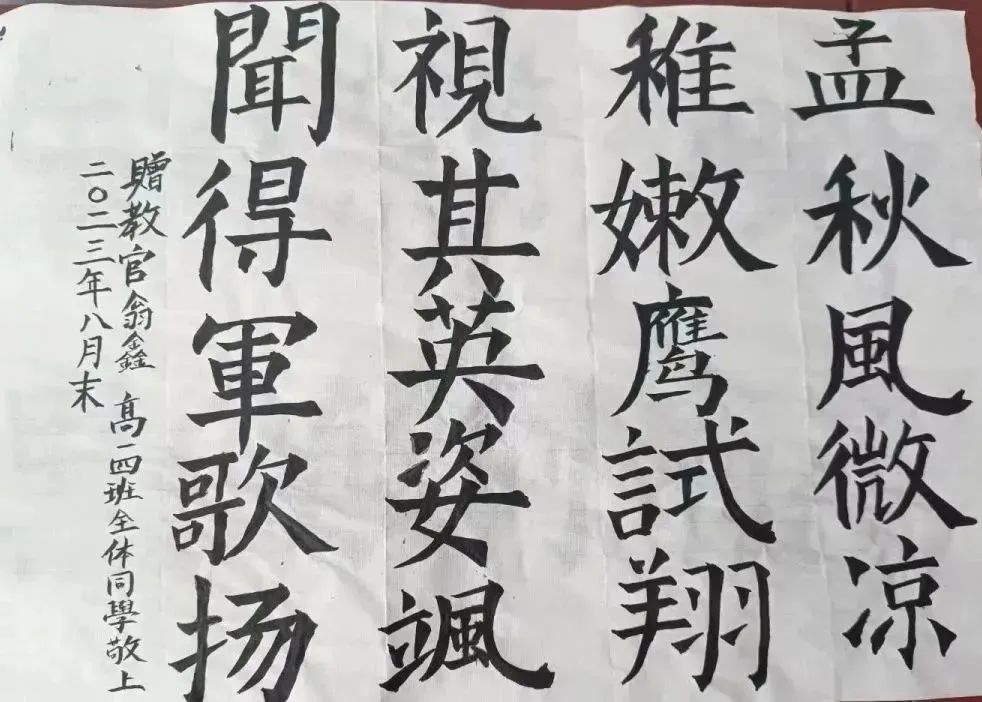 孟秋風微涼
稚嫩鹰試翔
視其英姿颯
聞得軍歌扬
贈教官翁鑫 高二四班全体同學敬上
二〇二三年八月末